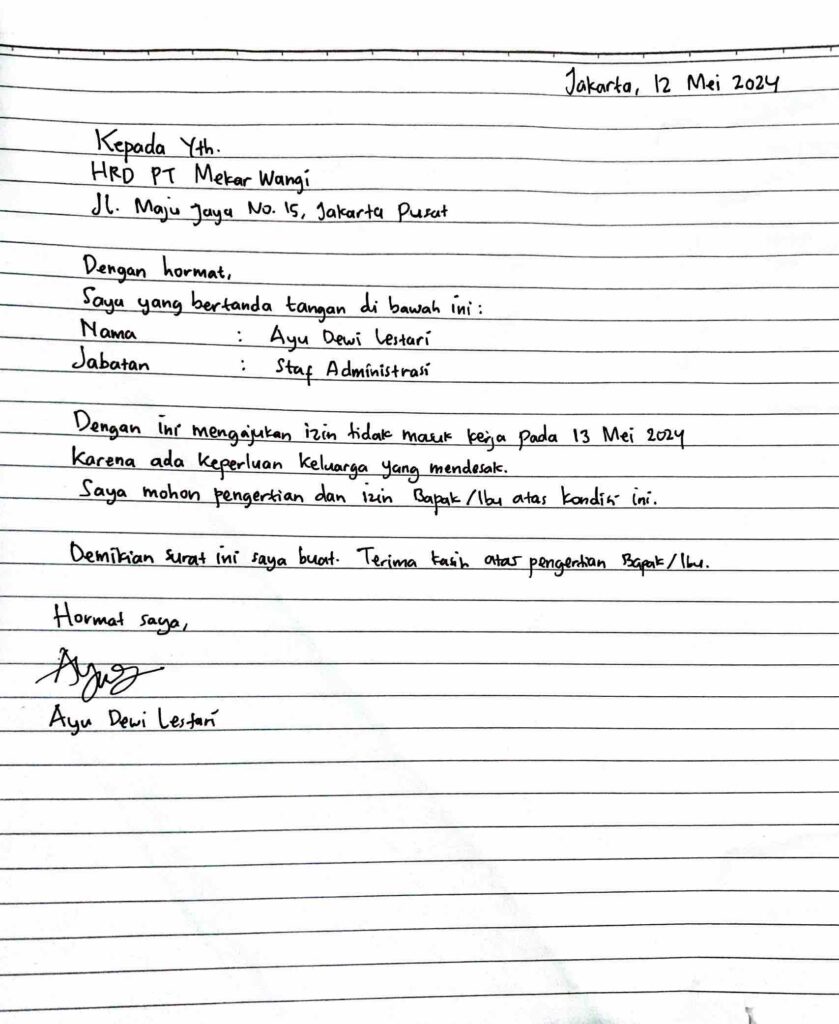 Jakarta, 12 Mei 2024
Kepada Yth.
HRD PT Mekar Wangi
Jl. Maju Jaya No. 15, Jakarta Pusat
Dengan hormat,
Saya yang bertanda tangan di bawah ini :
Nama : Ayu Dewi Lestari
Jabatan : Staf Administrasi
Dengan ini mengajukan izin tidak masuk kerja pada 13 Mei 2024
Karena ada keperluan keluarga yang mendesak.
Saya mohon pengertian dan izin Bapak/Ibu atas kondisi ini.
Demikian surat ini saya buat. Terima kasih atas pengertian Bapak/Ibu.
Hormat saya,
Ayu Dewi Lestari